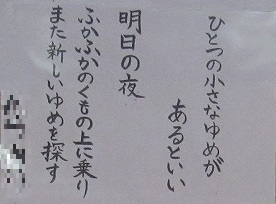 ひとつの小さなゆめが
あるといい
明日の夜
ふかふかのくもの上に乗り
また新しいゆめを探す